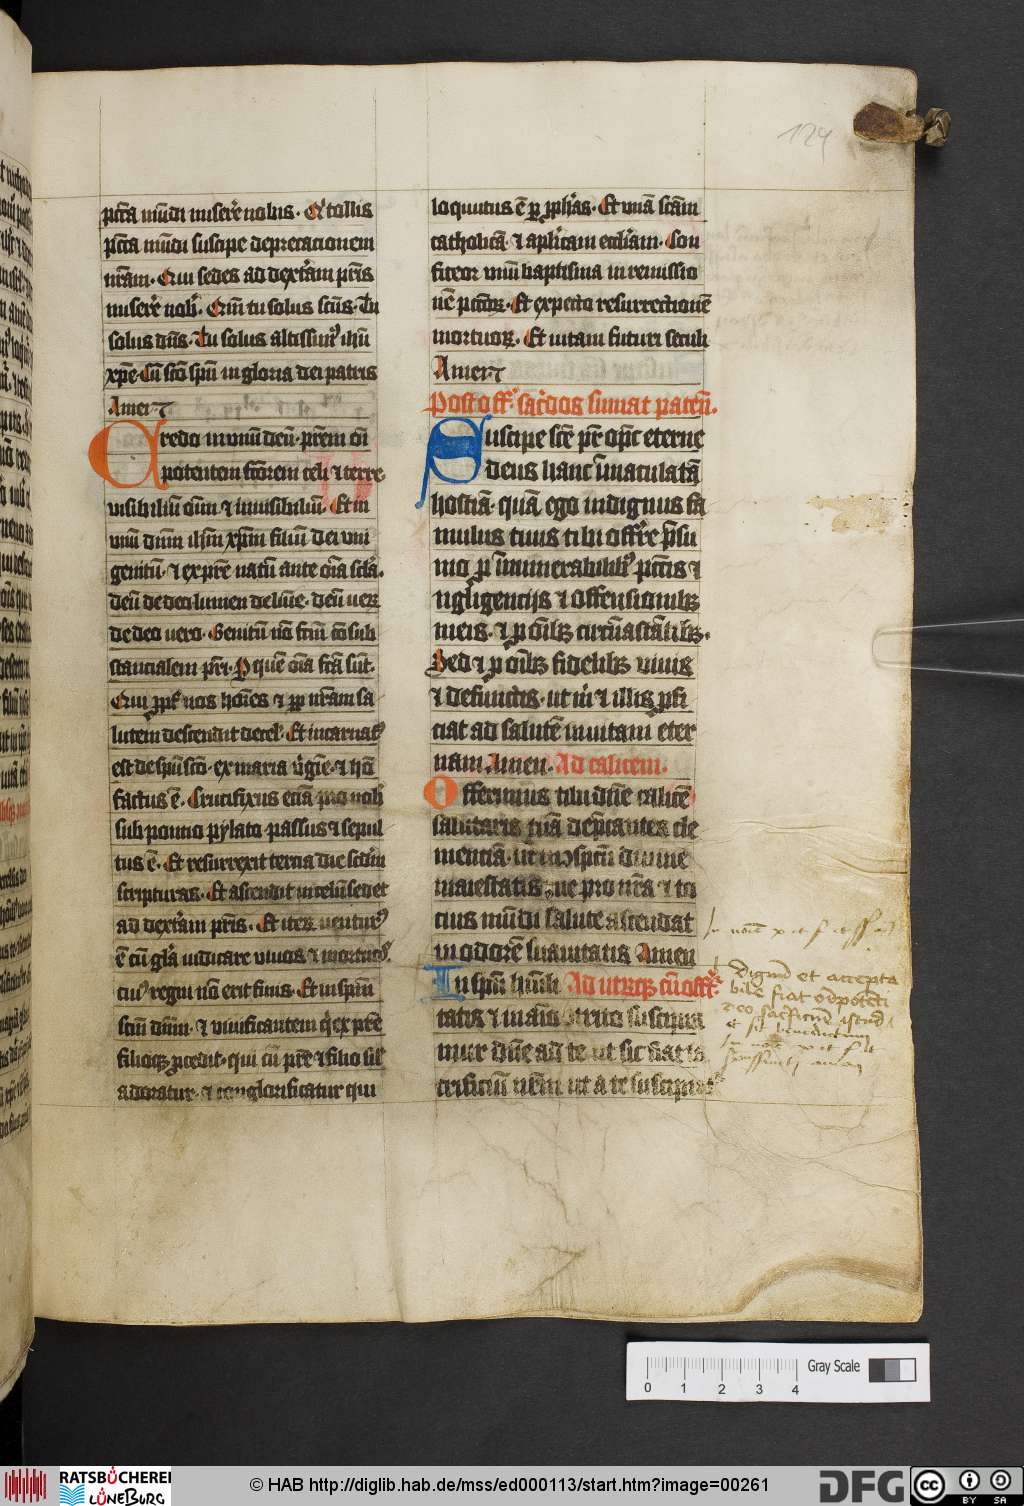 124
pctā mūdi miserē nobis. Qͥ tollis
pctā mūdi suscipe deprecacionem
nrām. Qui sedes ad dextrām prīs
miserē nob. Qm̄ tu solus scūs. Tu
solus dn̄s. Tu solus altissimꝰ ihū
xpē. Cū scō spū in gloria dei patris
Amen
Credo in unū deū. prēm oī
potentem fctōrem celi ⁊ terre
visibiliū oīm ⁊ invisibiliū. Et in
unū dnm̄ ihm̄ xpm̄ filiū dei uni
genitū. ⁊ ex prē natū ante oīa sclā.
Deū de deo lumen de lumīe. deū verꝝ
de deo vero. Genitū nō fctū cōsub
stancialem prī. Per quē oīa fctā sūt.
Qui ꝓpt̄ nos hoīes ⁊ ꝓpt̄ nrām sa
lutem descendit de cel. Et incarnatꝰ
est de spū scō. ex maria vͥgīe. ⁊ hō
factus ē. Crucifixus eciā pro nob
sub poncio pylato. passus ⁊ sepul
tus ē. Et resurrexit tercia die scdm̄
scripturas. Et ascendit in celū sedet
ad dextrām prīs. Et iteꝝ venturꝰ
ē cū glā iudicare vivos ⁊ mortuos.
Cuiꝰ regni nō erit finis. Et in spm̄
scm̄ dnm̄. ⁊ vivificantem qͥ ex prē
filioqꝫ ꝓcedit. qui cū prē ⁊ filio sil
adoratur. ⁊ conglorificatur qui
loquutus ē per ꝓphās. Et unā scām
catholicā. ⁊ aplīcam ecclīam. Con
fiteor unū baptisma in remissio
nē pctōꝝ. Et expecto resurrectionē
mortuoꝝ. Et vitam futuri seculi
Amen
Post off. sacͤdos sumat patenā.
Suscipe scē pr̄ opc̄ eterne
deus hanc īmaculatā
hostiā. quā ego indignus fa
mulus tuus tibi offerre p̄su
mo ꝓ īnumerabilibꝰ pctīs ⁊
nͤgligencijs ⁊ offensionibꝫ
meis. ⁊ ꝓ oībꝫ circūstātibꝫ.
Sed ⁊ ꝓ oībꝫ fidelibꝫ vivis
⁊ defunctis. ut mͥ ⁊ illis ꝓfi
ciat ad salutē in vitam eter
nam Amen. Ad calicem.
Offerimus tibi dnē calicē
salutaris tuā dep̄cantes cle
menciā. ut in cōspctū divine
maiestatis tue pro nrā ⁊ to
cius mūdi salute ascendat
in odorē suavitatis Amen
In spū hūili Ad utrūqꝫ cū off.
tatis ⁊ in aīo contrito suscipia
mur dnē ad te ut sic fiat sa
crificiū nrm̄ ut a te suscipiat
In noīe p et f et ss
Dignū et accepta
bile fiat oīpotenti
deo sacrificiū istud
In noīe p et f et
Gray Scale
0 1 2 3 4
RATSBÜCHEREI
LÜNEBURG
© HAB http://diglib.hab.de/mss/ed000113/start.htm?image=00261
DFG
cc
BY SA